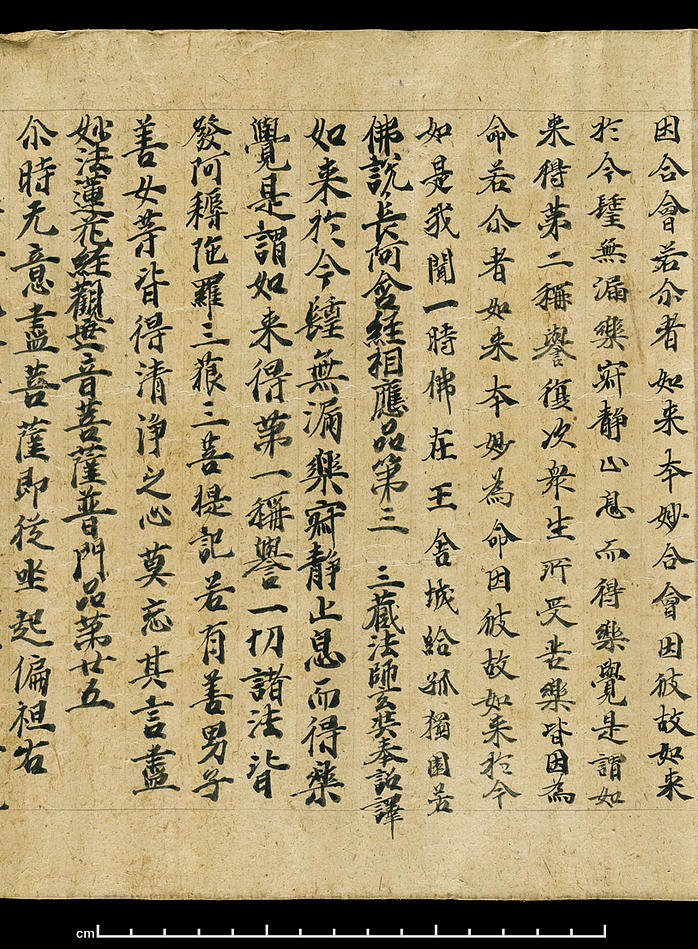 因合會若尒者如来夲妙合會因彼故如来
於今髄無漏樂寂静止息而得樂覺是謂如
来得苐二稱譽復次衆生所受苦樂皆因為
命若尒者如来夲妙為命因彼故如来於今
如是我聞一時佛在王舍城給孤獨園若
佛說長阿含経相應品苐三　三藏法師玄奘奉詔譯
如来於今髄無漏樂寂静止息而得樂
覺是謂如来得苐一稱譽一切諸法皆
發阿耨陁羅三藐三菩提記若有善男子
善女等皆得清淨之心莫忘其言盡
妙法蓮花経觀世音菩薩普門品苐廿五
尒時无意盡菩薩即從坐起偏袒右